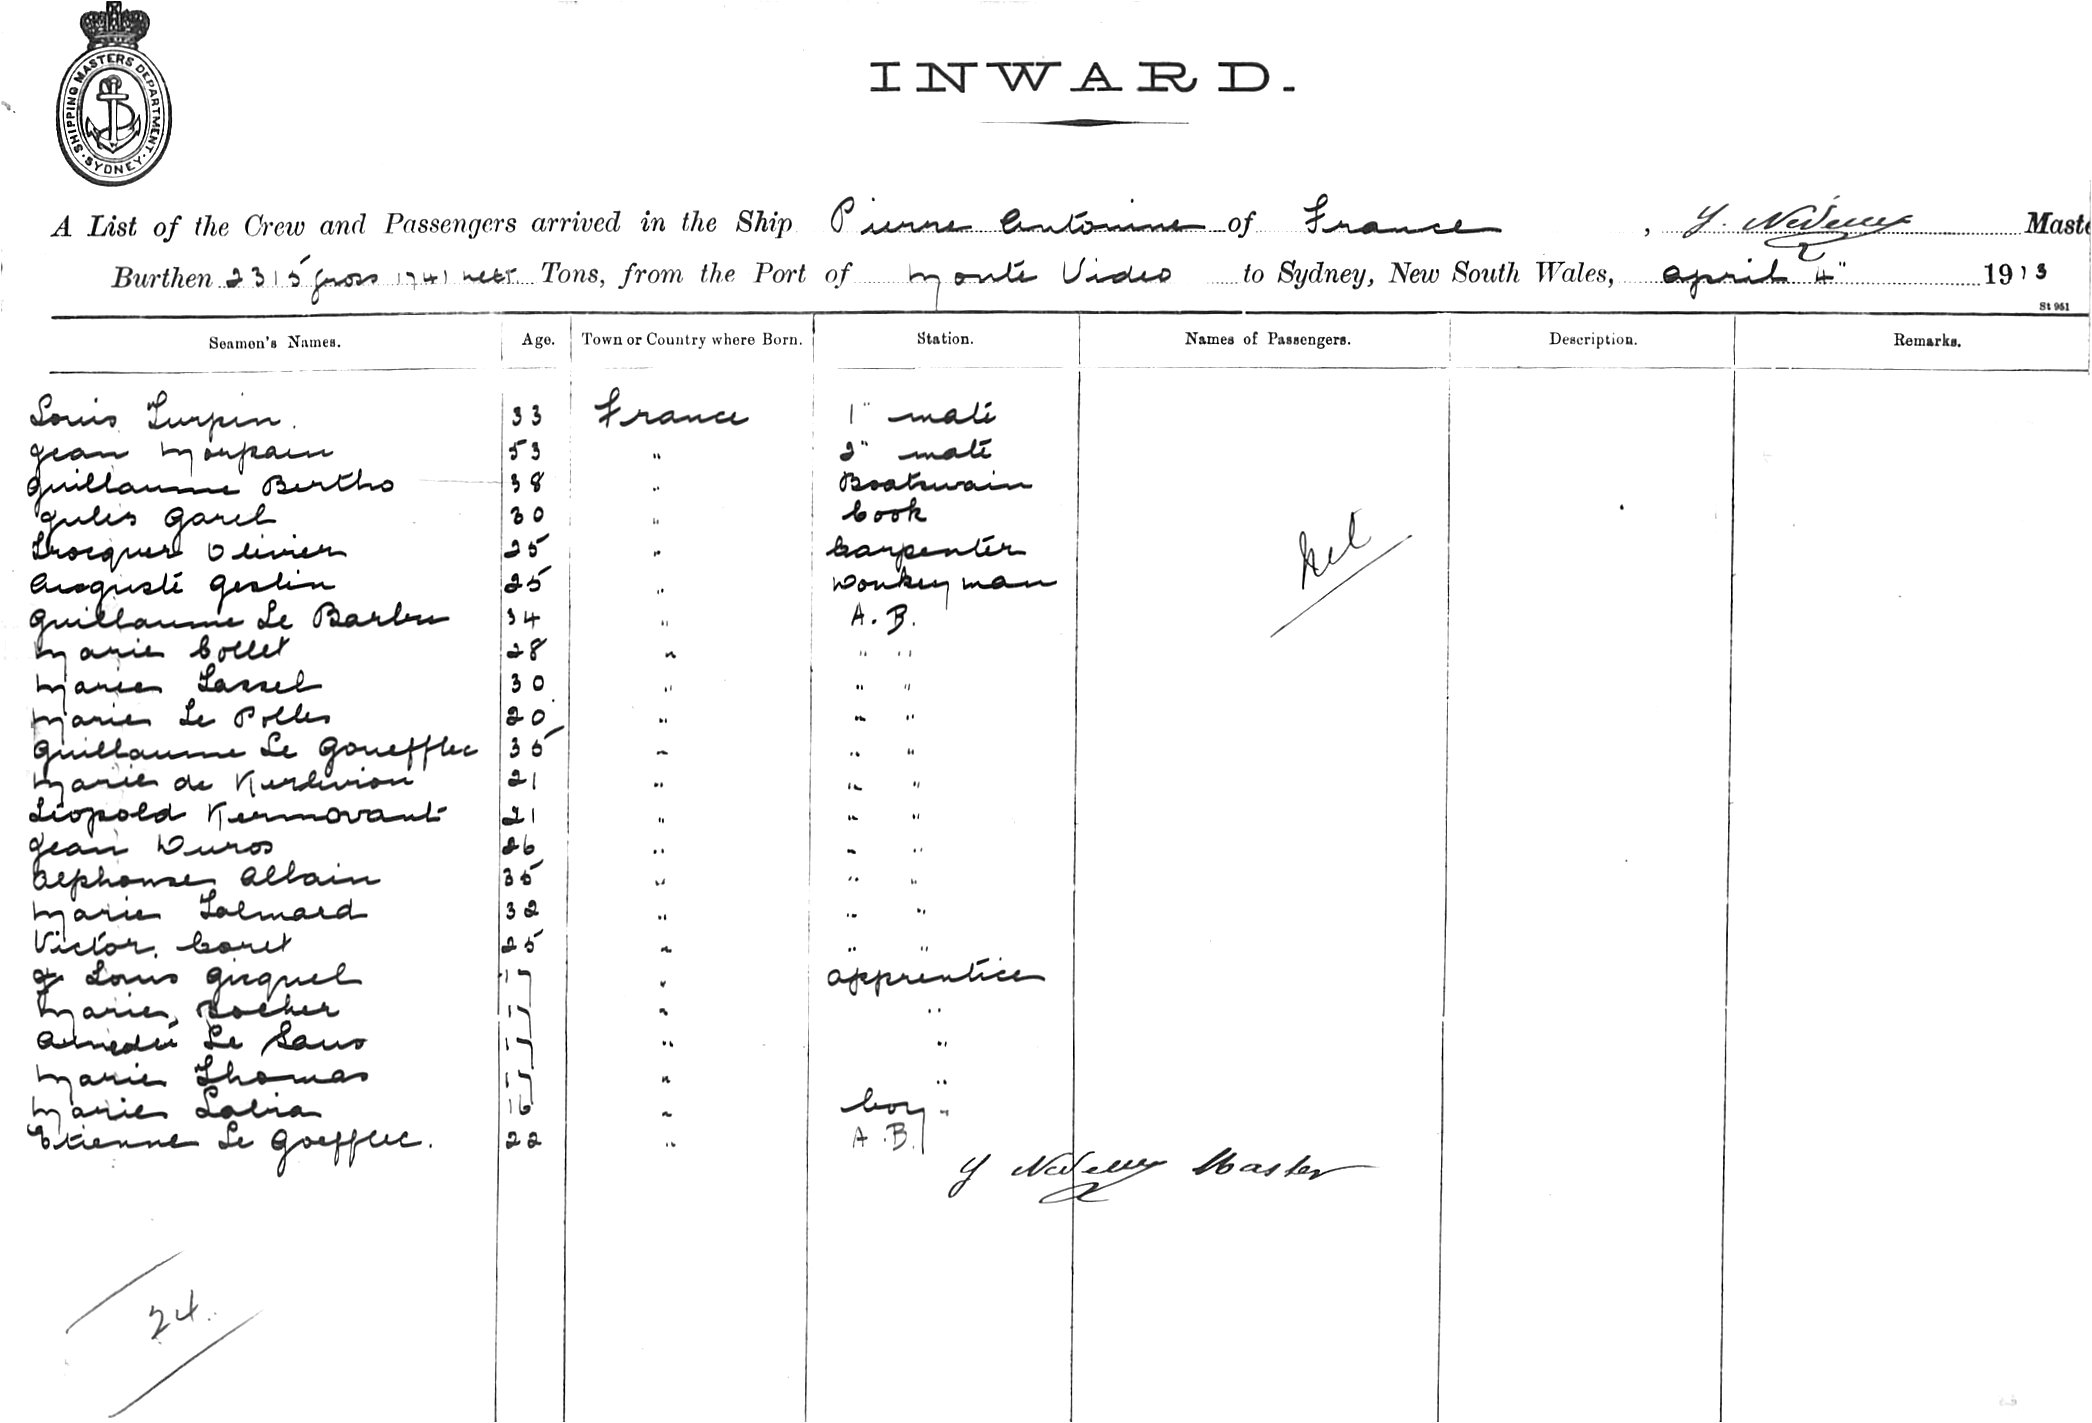 SHIPPING MASTERS DEPARTMENT
SYDNEY
INWARD.
A List of the Crew and Passengers arrived in the Ship Pierre Antonine of France , Y. Maste
Burthen 2315 gross 1741 nett Tons, from the Port of Monte Video to Sydney, New South Wales, April 4" 1913
St 951
Seamen's Names. Age. Town or Country where Born. Station. Names of Passengers. Description. Remarks.
Louis Turpin. 33 France 1" mate
Jean Morpain 53 " 2" mate
Guillaume Bertho 38 " Boatswain
Jules Garel 30 " Cook
Olivier 25 " Carpenter
Auguste Geslin 25 " Donkeyman
Guillaume Le Barbu 34 " A.B.
Marie Collet 28 " " "
Marie Lassel 30 " " "
Marie Le Polles 20 " " "
Guillaume Le Gouefflec 35 " " "
Marie de Kerlivion 21 " " "
Léopold Kermovant 21 " " "
Jean Duros 26 " " "
Alphonse Allain 35 " " "
Marie Lalmard 32 " " "
Victor Coret 25 " " "
J Louis Gicquel 17 " apprentice
Marie Rocher 17 " "
Amedée Le Saus 17 " "
Marie Thomas 17 " "
Marie Labia 16 " boy "
Etienne Le Goefflec. 22 " A.B.
Y Master
24.